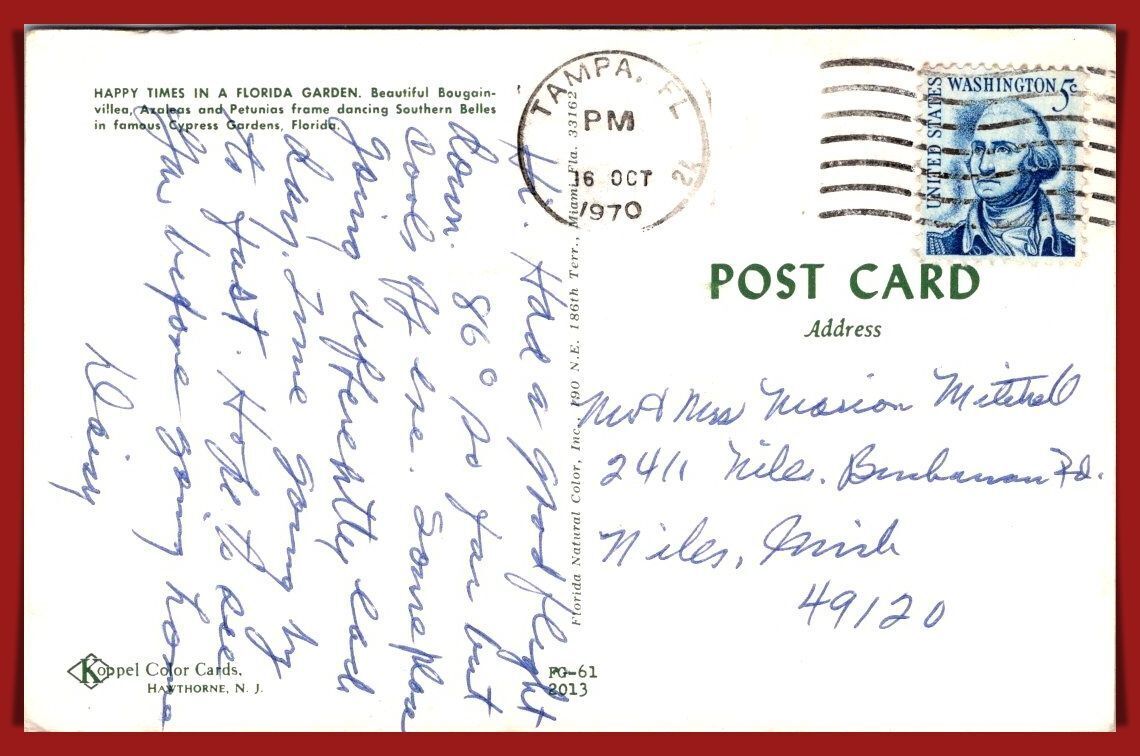 HAPPY TIMES IN A FLORIDA GARDEN. Beautiful Bougain-
villea, Azaleas and Petunias frame dancing Southern Belles
in famous Cypress Gardens, Florida.
Hi. Had a good flight
down. 86° so far but
cools off eve. Someplace
going differently each
day. Time going by
to fast. Hope to see
you before going home
Daisy
Koppel Color Cards,
HAWTHORNE, N. J.
FG-61
2013
Florida Natural Color, Inc., 190 N.E. 186th Terr., Miami, Fla. 33162
TAMPA, FL
PM
16 OCT
1970
UNITED STATES
WASHINGTON 5c
POST CARD
Address
Mr & Mrs Marion Mitchell
2411 Niles. Buchanan Rd.
Niles, Mich
49120